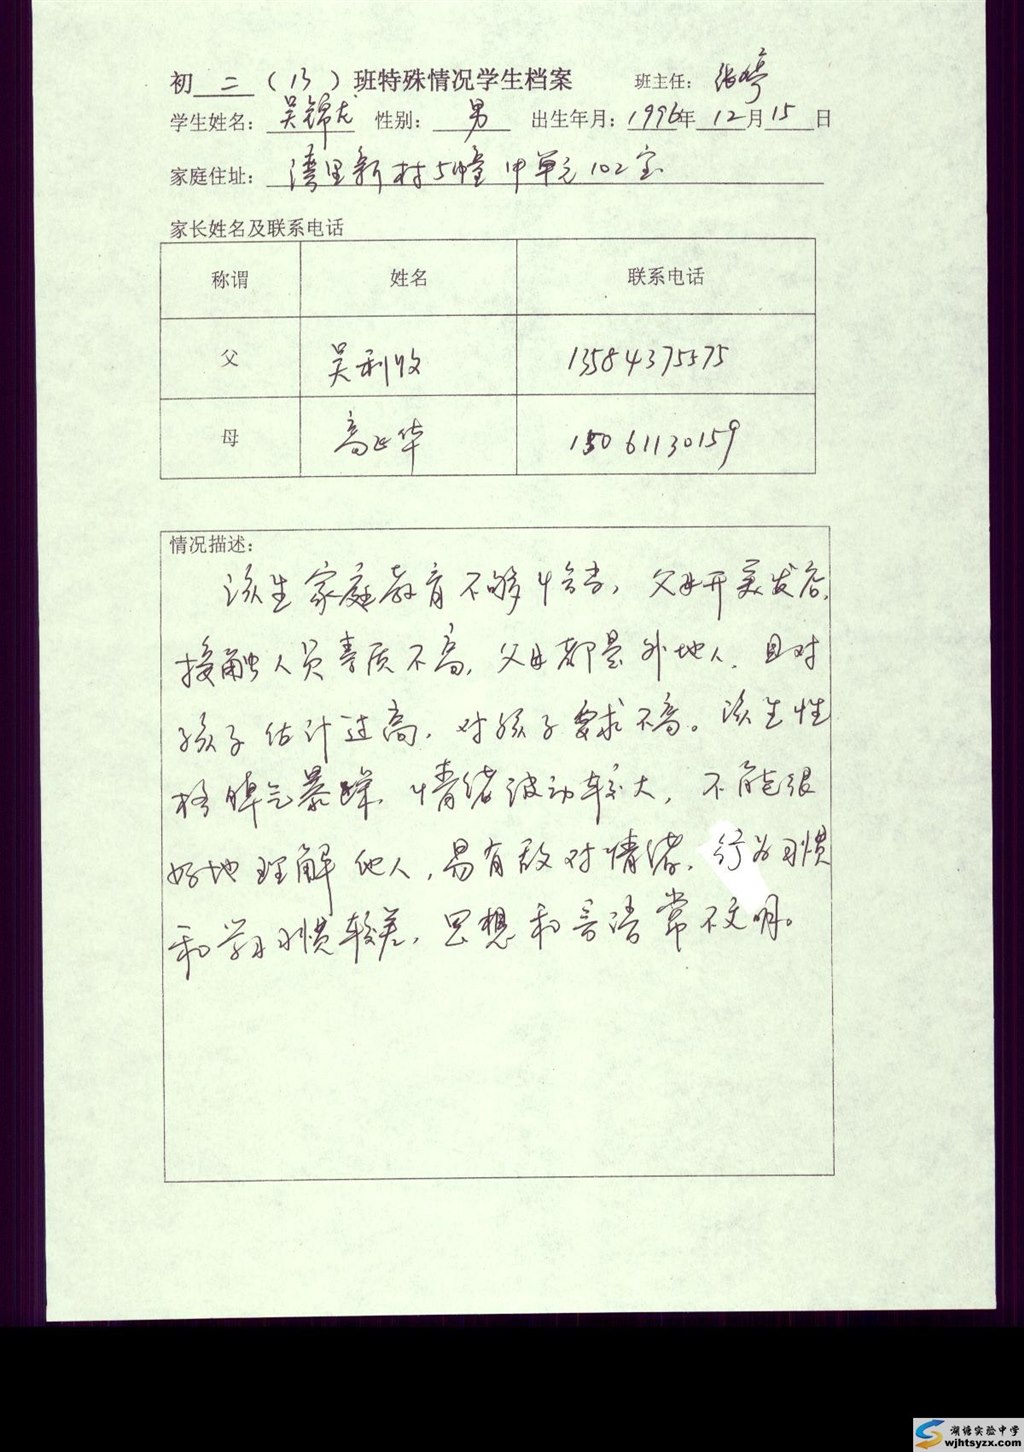 初 二 （13）班特殊情况学生档案 班主任：张婷
学生姓名：吴锦龙 性别：男 出生年月：1996年12月15日
家庭住址：湾里新村5幢甲单元102室
家长姓名及联系电话
称谓 姓名 联系电话
父 吴利收 13584375575
母 高正华 15061130159
情况描述：
该生家庭教育不够恰当，父母开美发店，
接触人员素质不高，父母都是外地人，且对
孩子估计过高，对孩子要求不高。该生性
格脾气暴躁，情绪波动较大，不能很
好地理解他人，易有敌对情绪，行为习惯
和学习习惯较差，思想和言语常不文明。
湖塘实验中学
wjhtsyzx.com